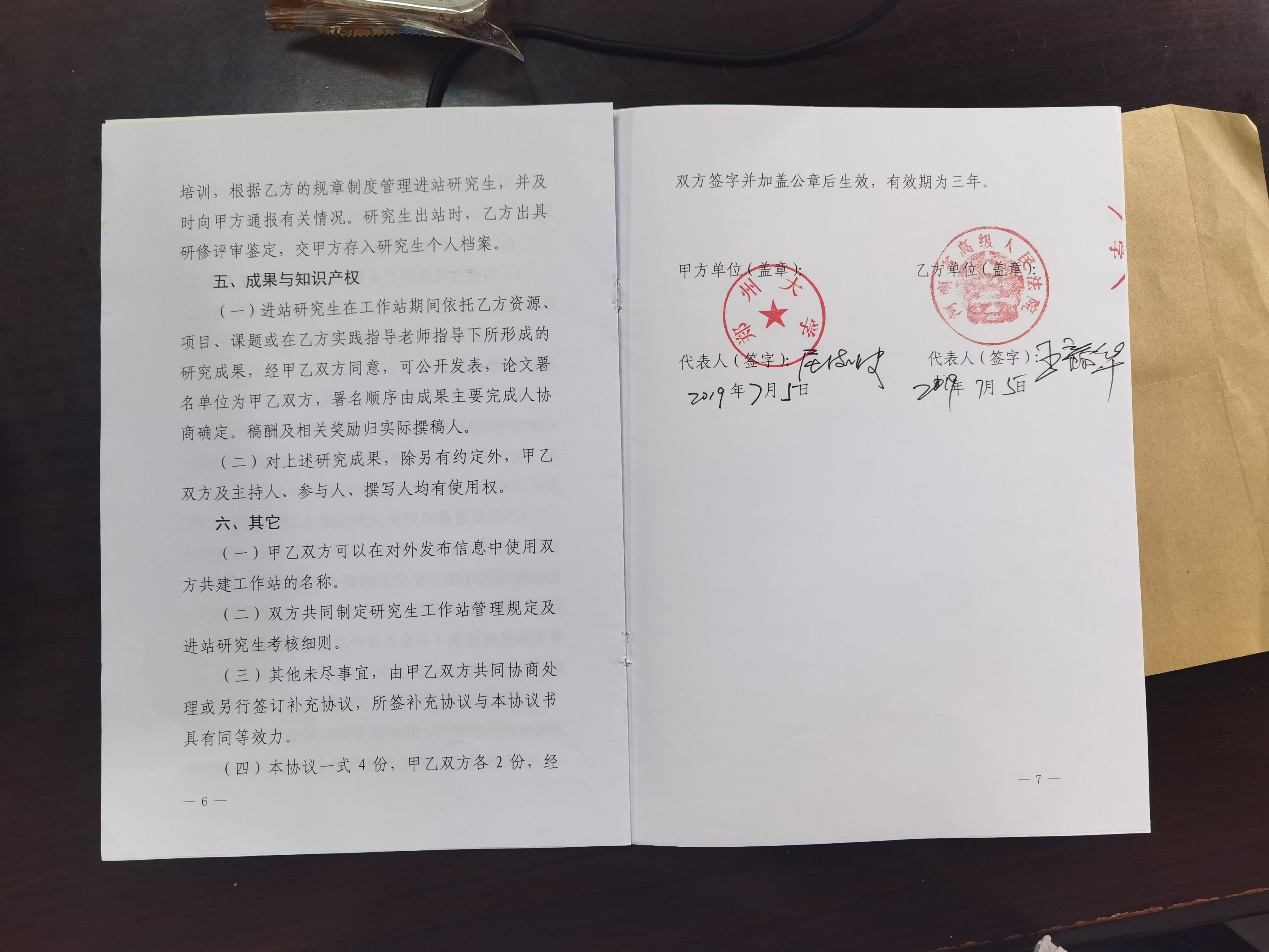 培训，根据乙方的规章制度管理进站研究生，并及
时向甲方通报有关情况。研究生出站时，乙方出具
研修评审鉴定，交甲方存入研究生个人档案。
五、成果与知识产权
（一）进站研究生在工作站期间依托乙方资源、
项目、课题或在乙方实践指导老师指导下所形成的
研究成果，经甲乙双方同意，可公开发表，论文署
名单位为甲乙双方，署名顺序由成果主要完成人协
商确定。稿酬及相关奖励归实际撰稿人。
（二）对上述研究成果，除另有约定外，甲乙
双方及主持人、参与人、撰写人均有使用权。
六、其它
（一）甲乙双方可以在对外发布信息中使用双
方共建工作站的名称。
（二）双方共同制定研究生工作站管理规定及
进站研究生考核细则。
（三）其他未尽事宜，由甲乙双方共同协商处
理或另行签订补充协议，所签补充协议与本协议书
具有同等效力。
（四）本协议一式 4 份，甲乙双方各 2 份，经
— 6 —
双方签字并加盖公章后生效，有效期为三年。
甲方单位（盖章）：
郑州大学
代表人（签字）：
2019年7月5日
乙方单位（盖章）：
河南省高级人民法院
代表人（签字）：
2019年7月5日
学
— 7 —